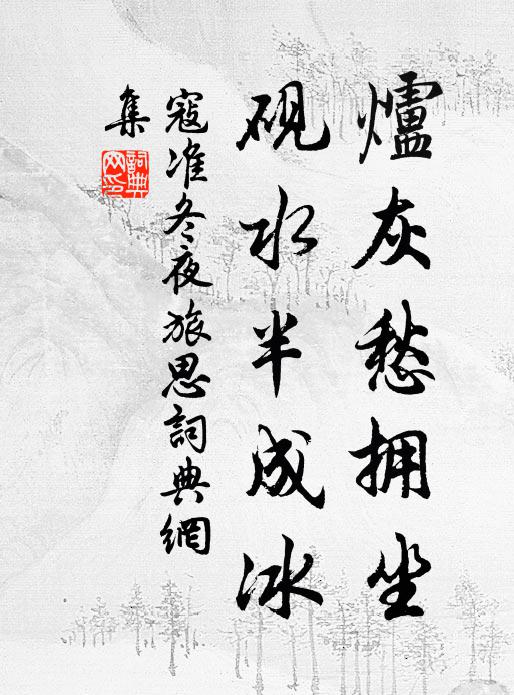 爐灰愁拥坐
砚水半成冰
寇准冬夜旅思詞典網
集
詞典
网印